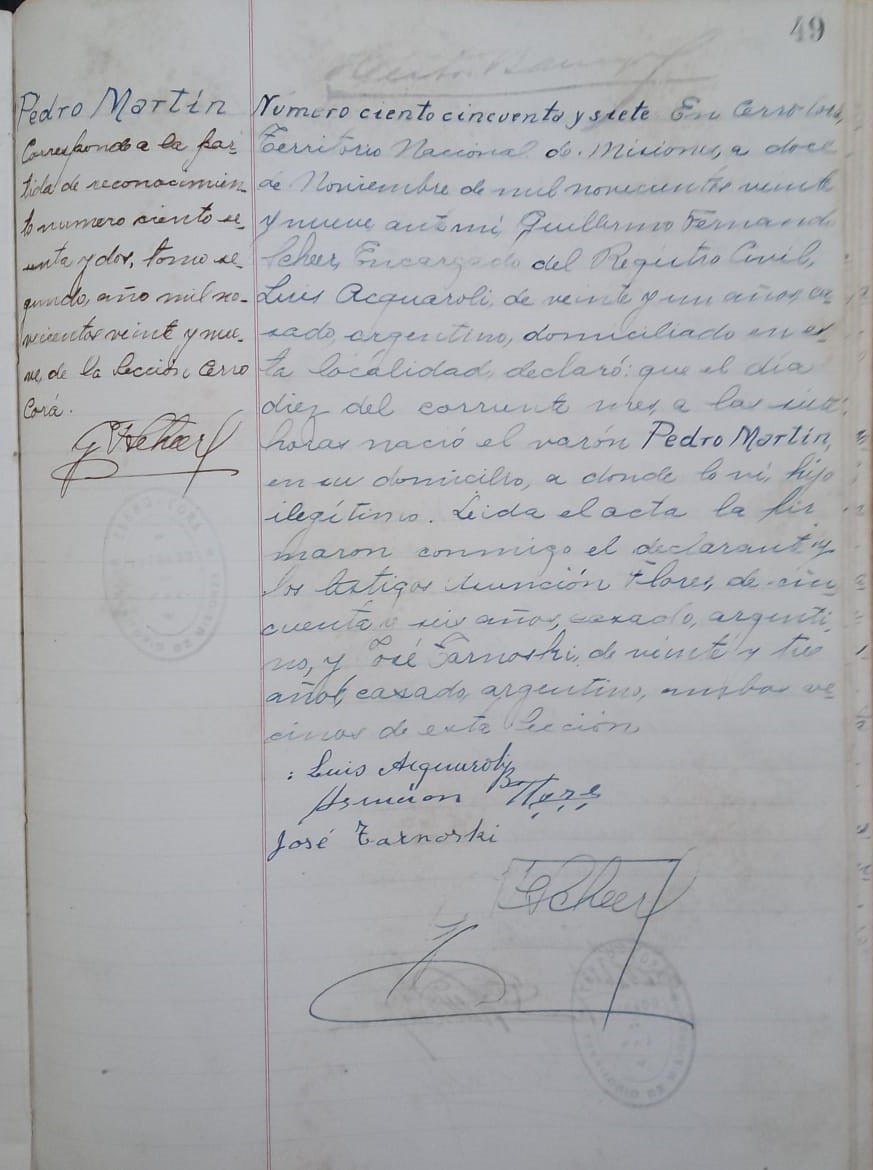 49
Pedro Martín
Corresponde a la par-
tida de reconocimien-
to numero ciento se-
senta y dos, tomo se-
gundo, año mil no-
vecientos veinte y nue-
ve, de la Sección, Cerro
Corá.
GFScheer
Número ciento cincuenta y siete En Cerro Corá,
Territorio Nacional de Misiones, a doce
de Noviembre de mil novecientos veinte
y nueve, ante mí, Guillermo Fernando
Scheer, Encargado del Registro Civil,
Luis Acquaroli, de veinte y un años, ca-
sado, argentino, domiciliado en es-
ta localidad, declaró: que el día
diez del corriente mes, a las siete
horas nació el varón Pedro Martín,
en su domicilio, a donde lo vi, hijo
ilegítimo. Leida el acta la fir
maron conmigo el declarante y
los testigos Asunción Flores, de cin-
cuenta y seis años, casado, argenti-
no, y José Tarnoski, de veinte y tres
años, casado, argentino, ambos ve-
cinos de esta Sección
Luis Acquaroli
Asuncion Flores
José Tarnoski
GFScheer